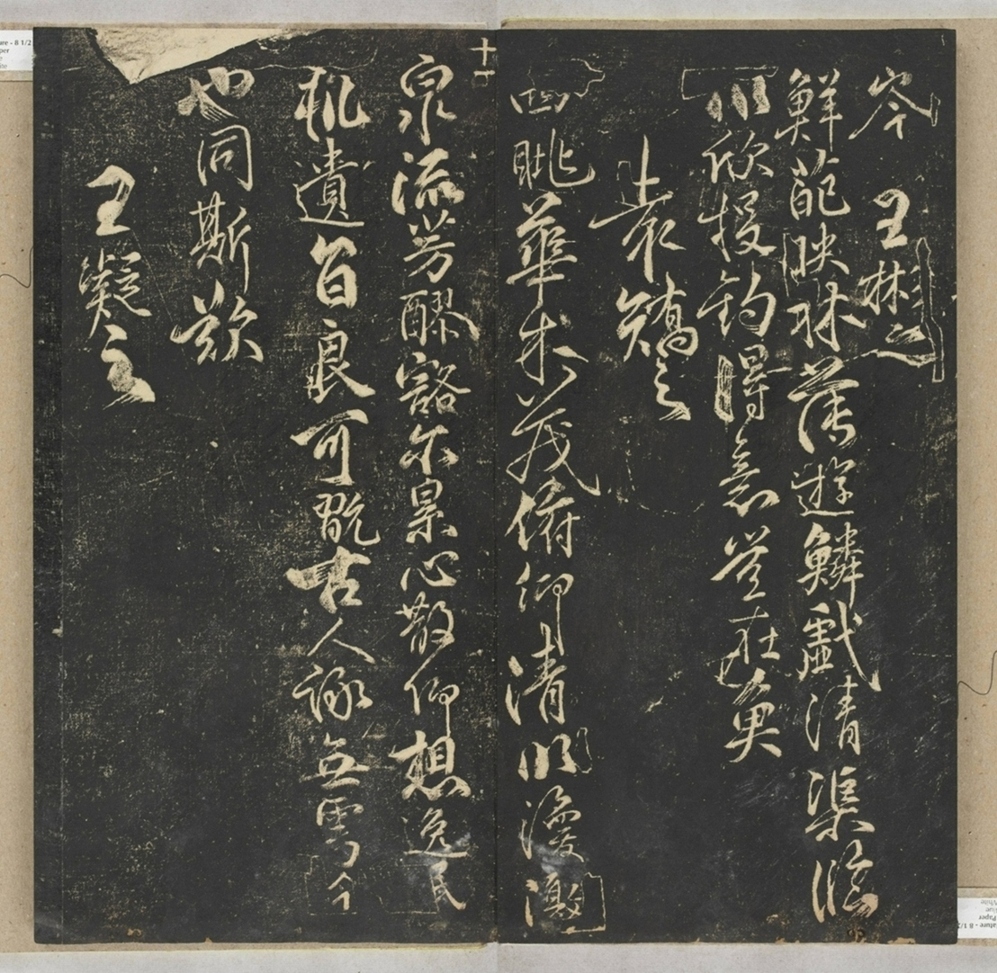 岑　王彬之
鮮葩映林薄遊鱗戲清渠臨
川欣投釣得意豈在魚
袁矯之
四眺華木茂俯仰清川渙激
泉流芳醪豁尔累心散仰想逸民
軌遺旨良可翫古人詠舞雩今
也同斯歡
王凝之